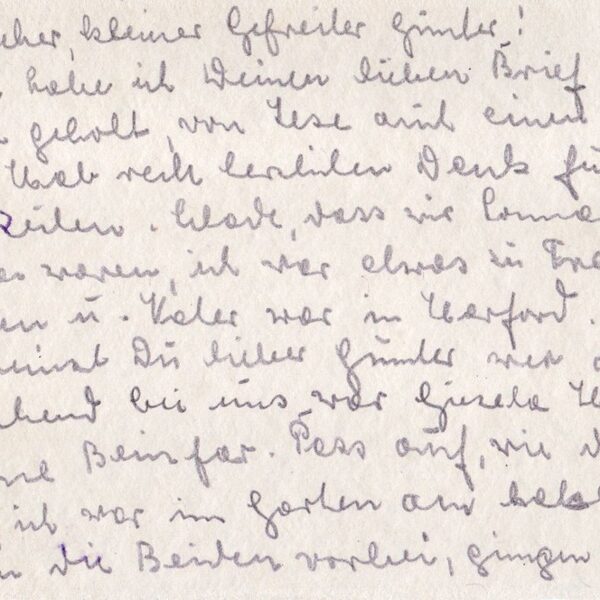 kleiner Gefreiter Günter!
habe ich Deinen lieben Brief
geholt, von Hese aus einen
Hab recht herzlichen Dank fü
Zeilen. Schade, dass wir
waren, ich war etwas zu
en u. Vater war in Herford.
meinst Du lieber Günter wer
bend bei uns war Gisela
Pass auf, wie
ich war im Garten am
die Beiden vorbei, gingen